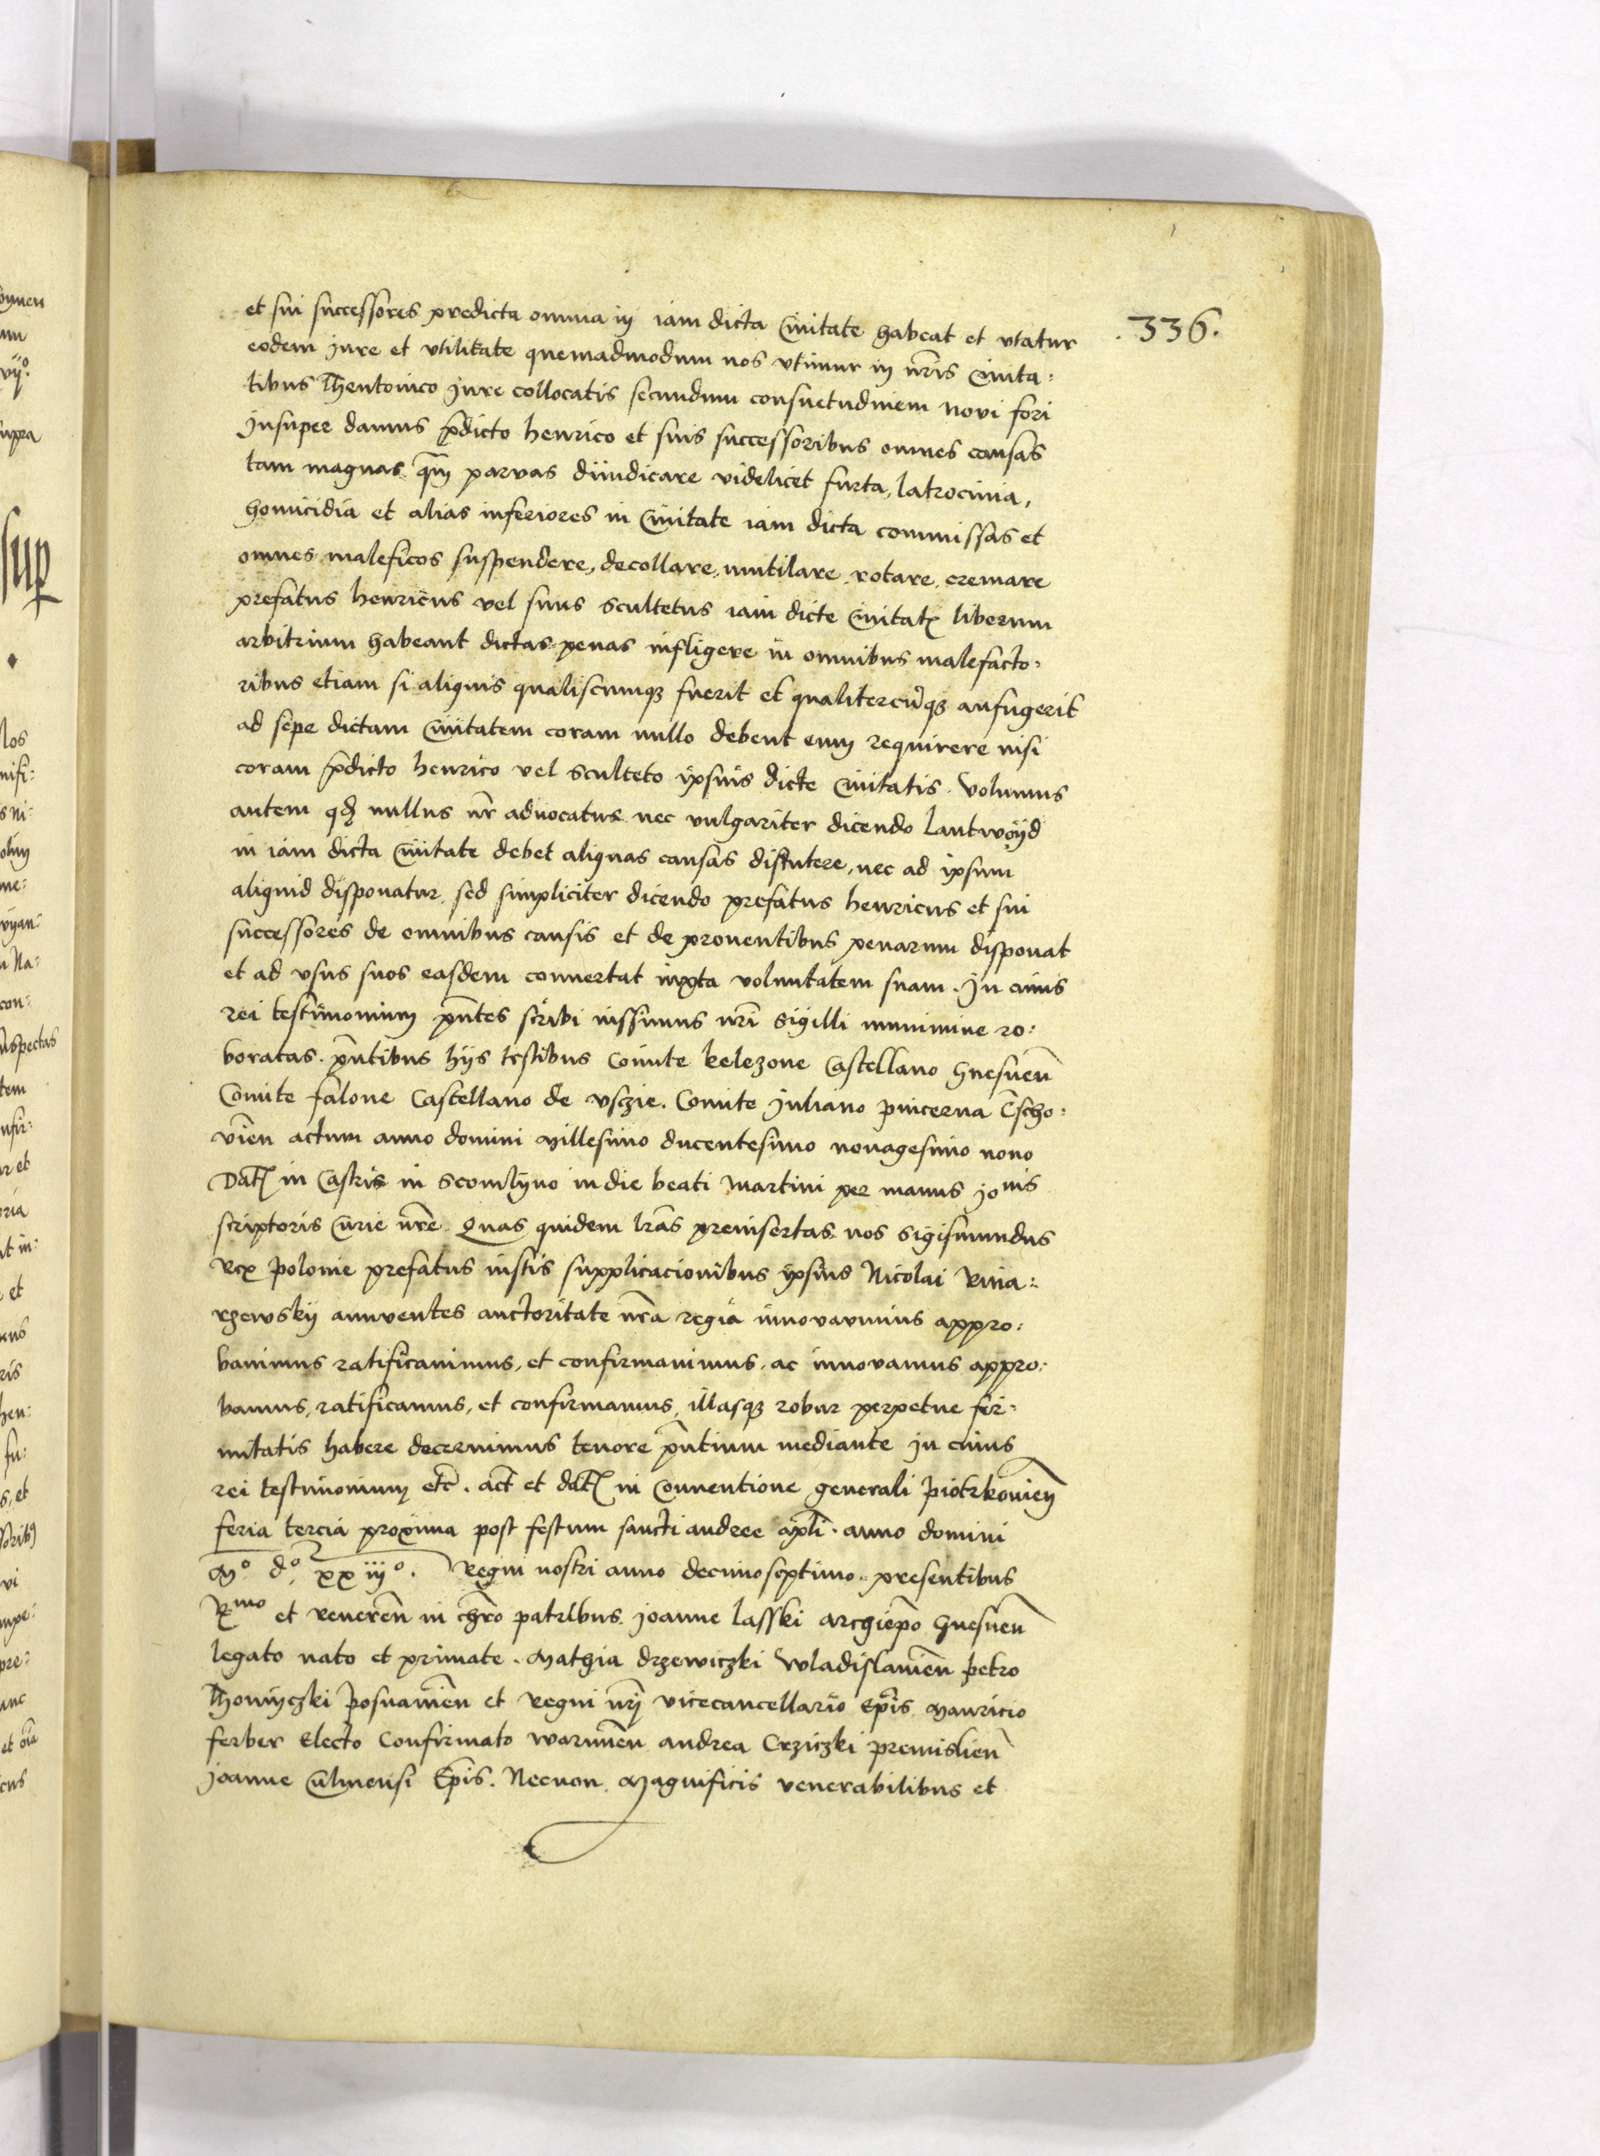 et sui successores predicta omnia in iam dicta Civitate habeat et utatur
336.
eodem iure et utilitate quemadmodum nos utimur in nr̃is Civita:
tibus Theutonico Jure collocatis secundum consuetudinem Novi fori
Insuper damus p̃dicto Henrico et suis successoribus omnes causas
tam magnas q̃m parvas diiudicare videlicet furta, latrocinia,
homicidia et alias inferiores in Civitate iam dicta commissas et
omnes maleficos suspendere, decollare, mutilare, rotare, cremare
prefatus Henricus vel suus scultetus iam dicte Civitatꝭ liberum
arbitrium habeant dictas penas infligere in omnibus malefacto:
ribus etiam si aliquis qualiscumqꝫ fuerit et qualitercũqꝫ aufugerit
ad sepe dictam Civitatem coram nullo debent eum requirere nisi
coram p̃dicto Henrico vel sculteto ipsius dicte Civitatis. Volumus
autem qđ nullus nr̃ advocatus nec vulgariter dicendo Lantwoyd
in iam dicta Civitate debet aliquas causas discutere, nec ad ipsum
aliquid disponatur, sed simpliciter dicendo prefatus Henricus et sui
successores de omnibus causis et de proventibus penarum disponat
et ad usus suos easdem convertat iuxta voluntatem suam. In cuius
rei testimonium p̃ntes scribi iussimus nr̃i Sigilli munimine ro:
boratas. p̃ntibus hijs testibus Comite kelczone Castellano Gnesneñ
Comite falone Castellano de Usczie. Comite Juliano pincerna C̃scho:
vieñ actum anno domini Millesimo ducentesimo nonagesimo nono
Datꝭ in Castris in Scomlyno in die beati Martini per manus Jonis
scriptoris Curie nr̃e. Quas quidem lr̃as preinsertas nos Sigismundus
Rex polonie prefatus iustis supplicacionibus ipsius Nicolai Rusa:
rzewskij annuentes auctoritate nr̃a regia innovavimus appro:
bavimus ratificavimus, et confirmavimus, ac innovamus appro:
bamus, ratificamus, et confirmamus, illasqꝫ robur perpetue fir:
mitatis habere decernimus tenore p̃ntium mediante In cuius
rei testimonium etc̃. act̃ et datꝭ in Conventione generali piotrkovieñ
feria tercia proxima post festum sancti andree ap̃li. anno domini
Mº dº xxiijº. Regni nostri anno decimoseptimo. presentibus
Rmo et Revereñ in chr̃o patribus Joanne lasski archiep̃o Gnesneñ
legato nato et primate. Mathia drzewiczki Wladislavieñ petro
Thomiczki posnanieñ et Regni nr̃j vicecancellario Ep̃is Mauricio
ferber Electo Confirmato Warmieñ andrea Crziczki premislieñ
Joanne Culmensi Ep̃is. Necnon Magnificis venerabilibus et